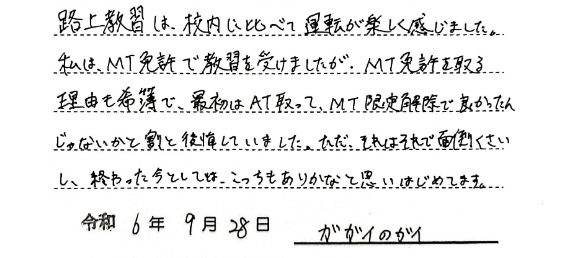 路上教習は、校内に比べて運転が楽しく感じました。
私は、MT免許で教習を受けましたが、MT免許を取る
理由も希薄で、最初はAT取って、MT限定解除で良かったん
じゃないかと割と後悔していました。ただ、それはそれで面倒くさい
し、終わった今としては、こっちもありかなと思いはじめてます。
令和 6年 9月 28日 ガガイのガイ